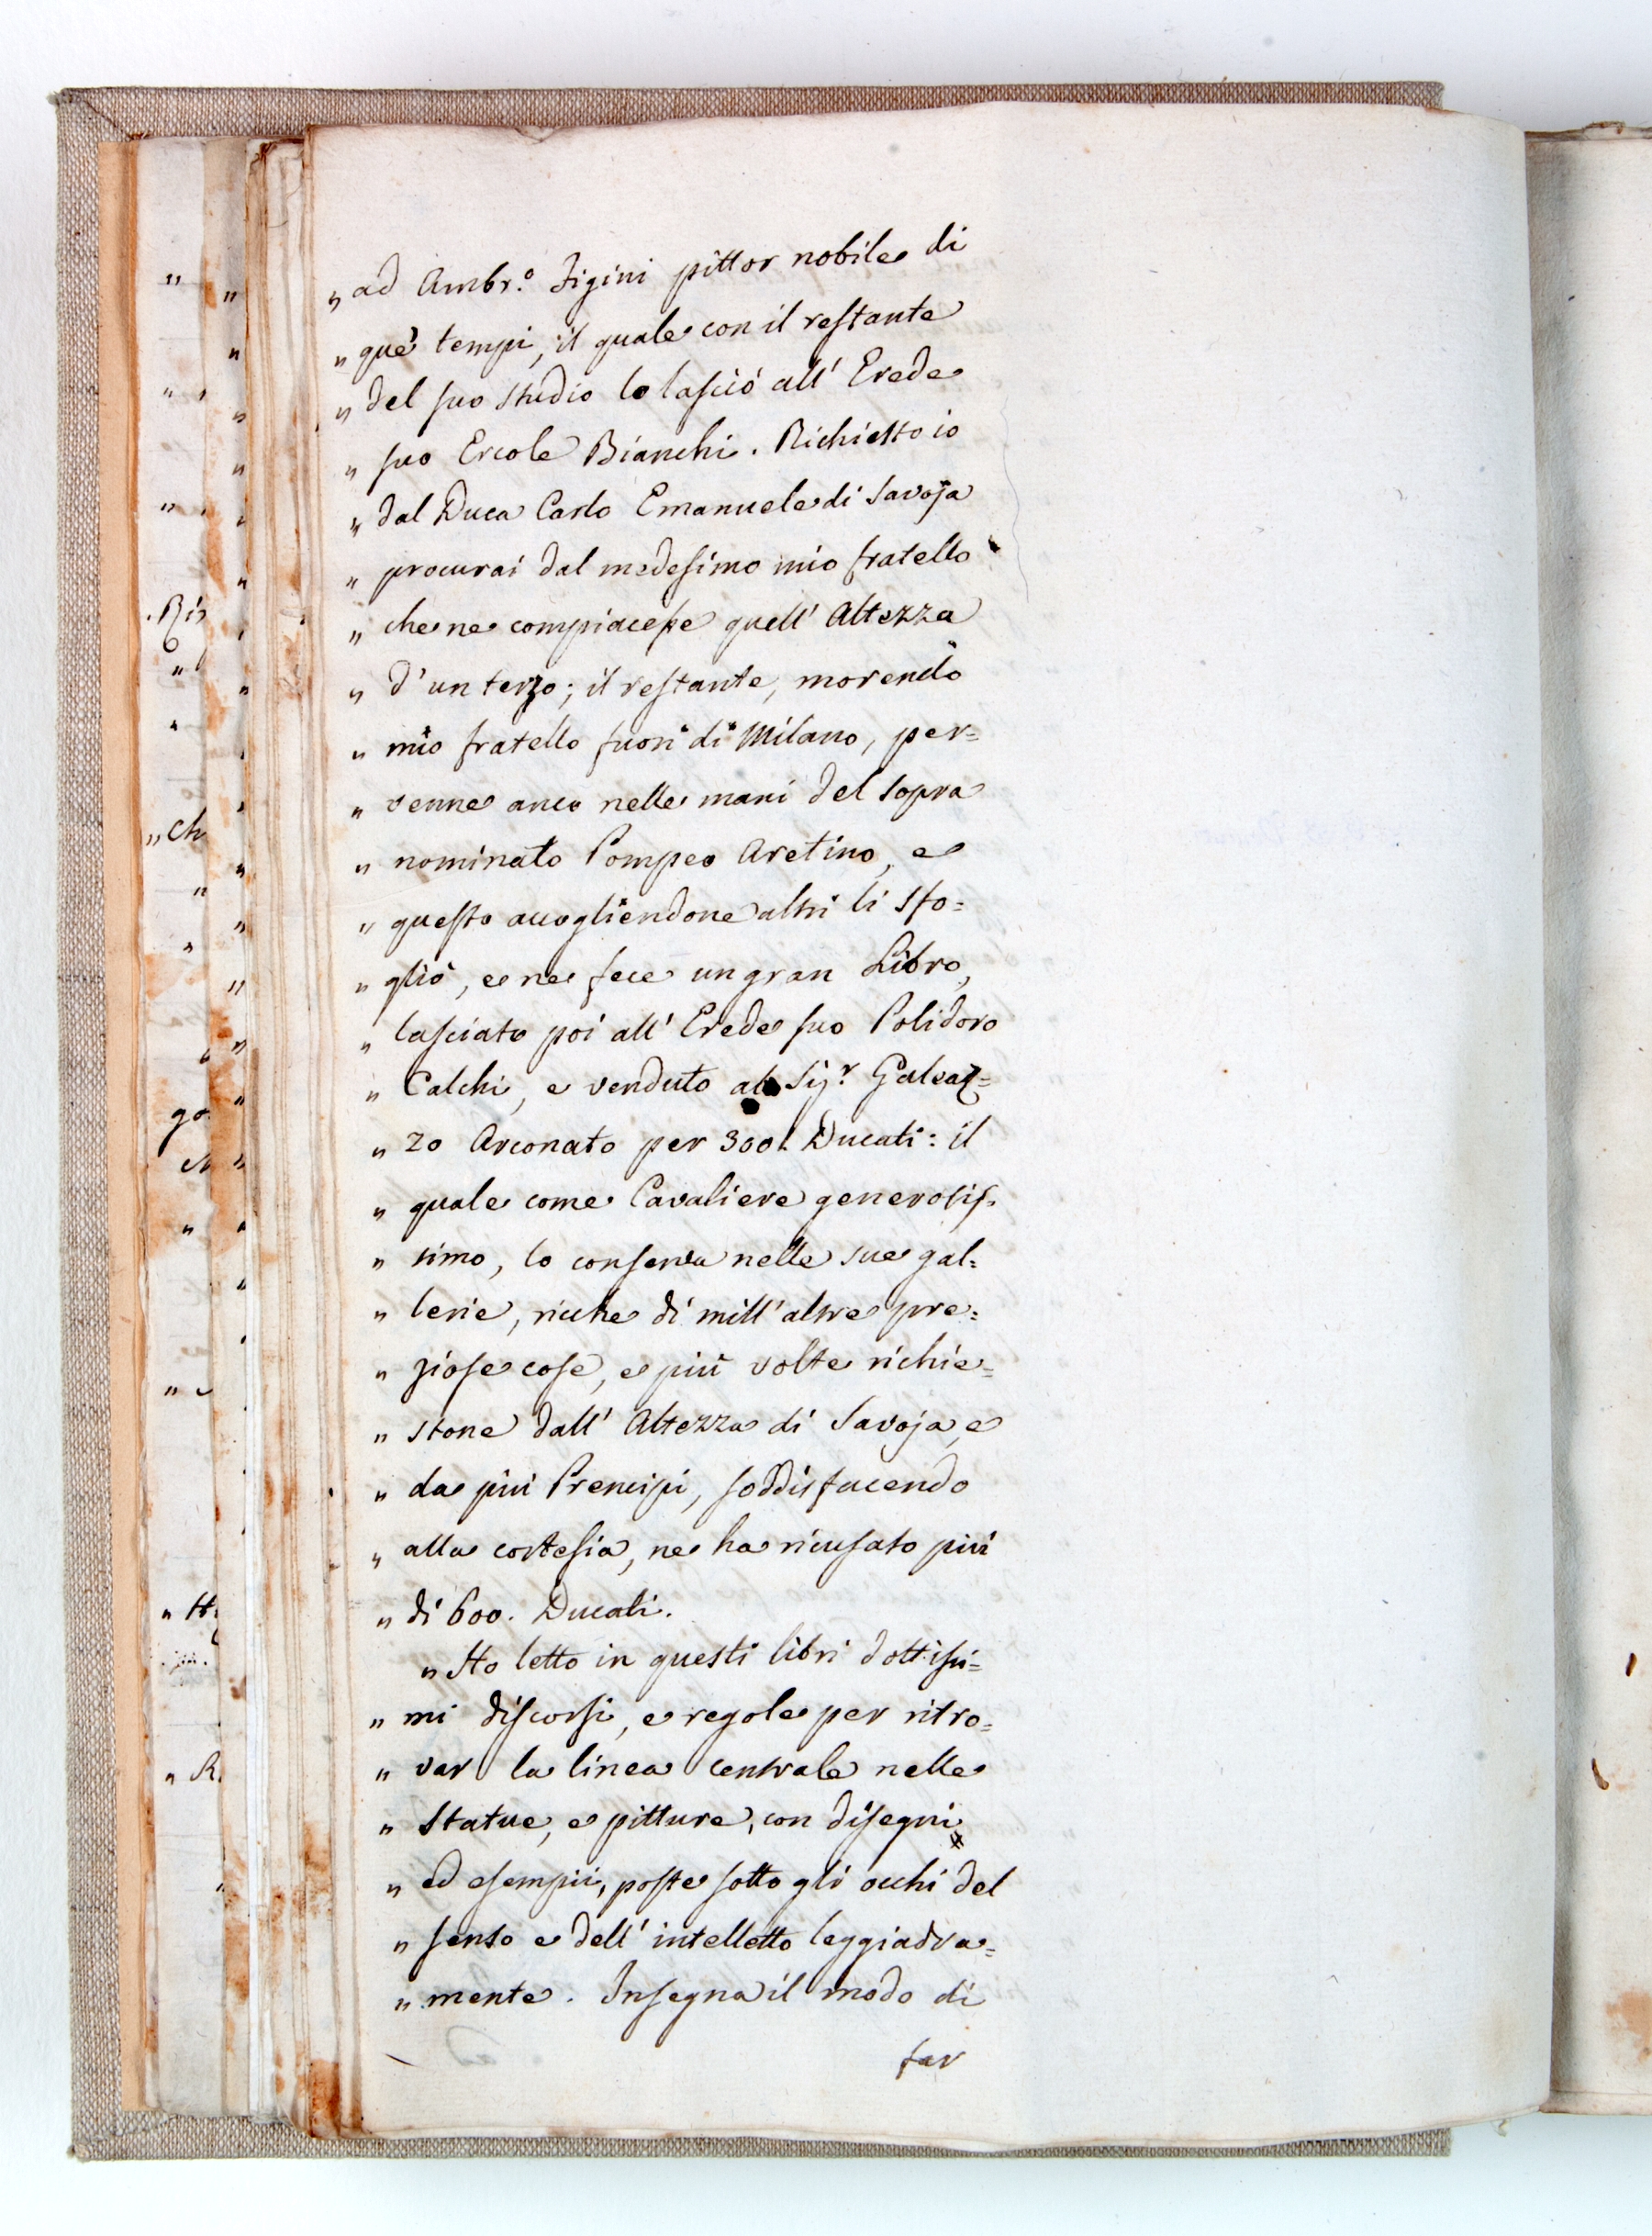 „ ad Ambr.º Figini pittor nobile di
„ què tempi, il quale con il restante
„ del suo studio lo lasciò all' Erede
„ suo Ercole Bianchi. Richiesto io
„ dal Duca Carlo Emanuele di Savoja
„ procurai dal medesimo mio fratello
„ che ne compiacesse quell' Altezza
„ d'un terzo; il restante, morendo
„ mio fratello fuori di Milano, per=
„ venne anco nelle mani del sopra
„ nominato Pompeo Aretino, e
„ questo accogliendone altri li sfo=
„ gliò, e ne fece un gran Libro,
„ lasciato poi all' Erede suo Polidoro
„ Calchi, e venduto al Sig.r Galeaz=
„ zo Arconato per 300. Ducati: il
„ quale come Cavaliere generosis=
„ simo, lo conserva nelle sue gal=
„ lerie, ricche di mill'altre pre=
„ ziose cose, e più volte richie=
„ stone dall' Altezza di Savoja, e
„ da più Prencipi, soddisfacendo
„ alla cortesia, ne ha ricusato più
„ di 600. Ducati.
„ Ho letto in questi libri dottissi=
„ mi discorsi, e regole per ritro=
„ var la linea centrale nelle
„ Statue, e pitture, con disegni
„ ed esempii, poste sotto gli occhi del
„ senso e dell' intelletto leggiadra=
„ mente. Insegna il modo di
far
„ Ch
„ R.